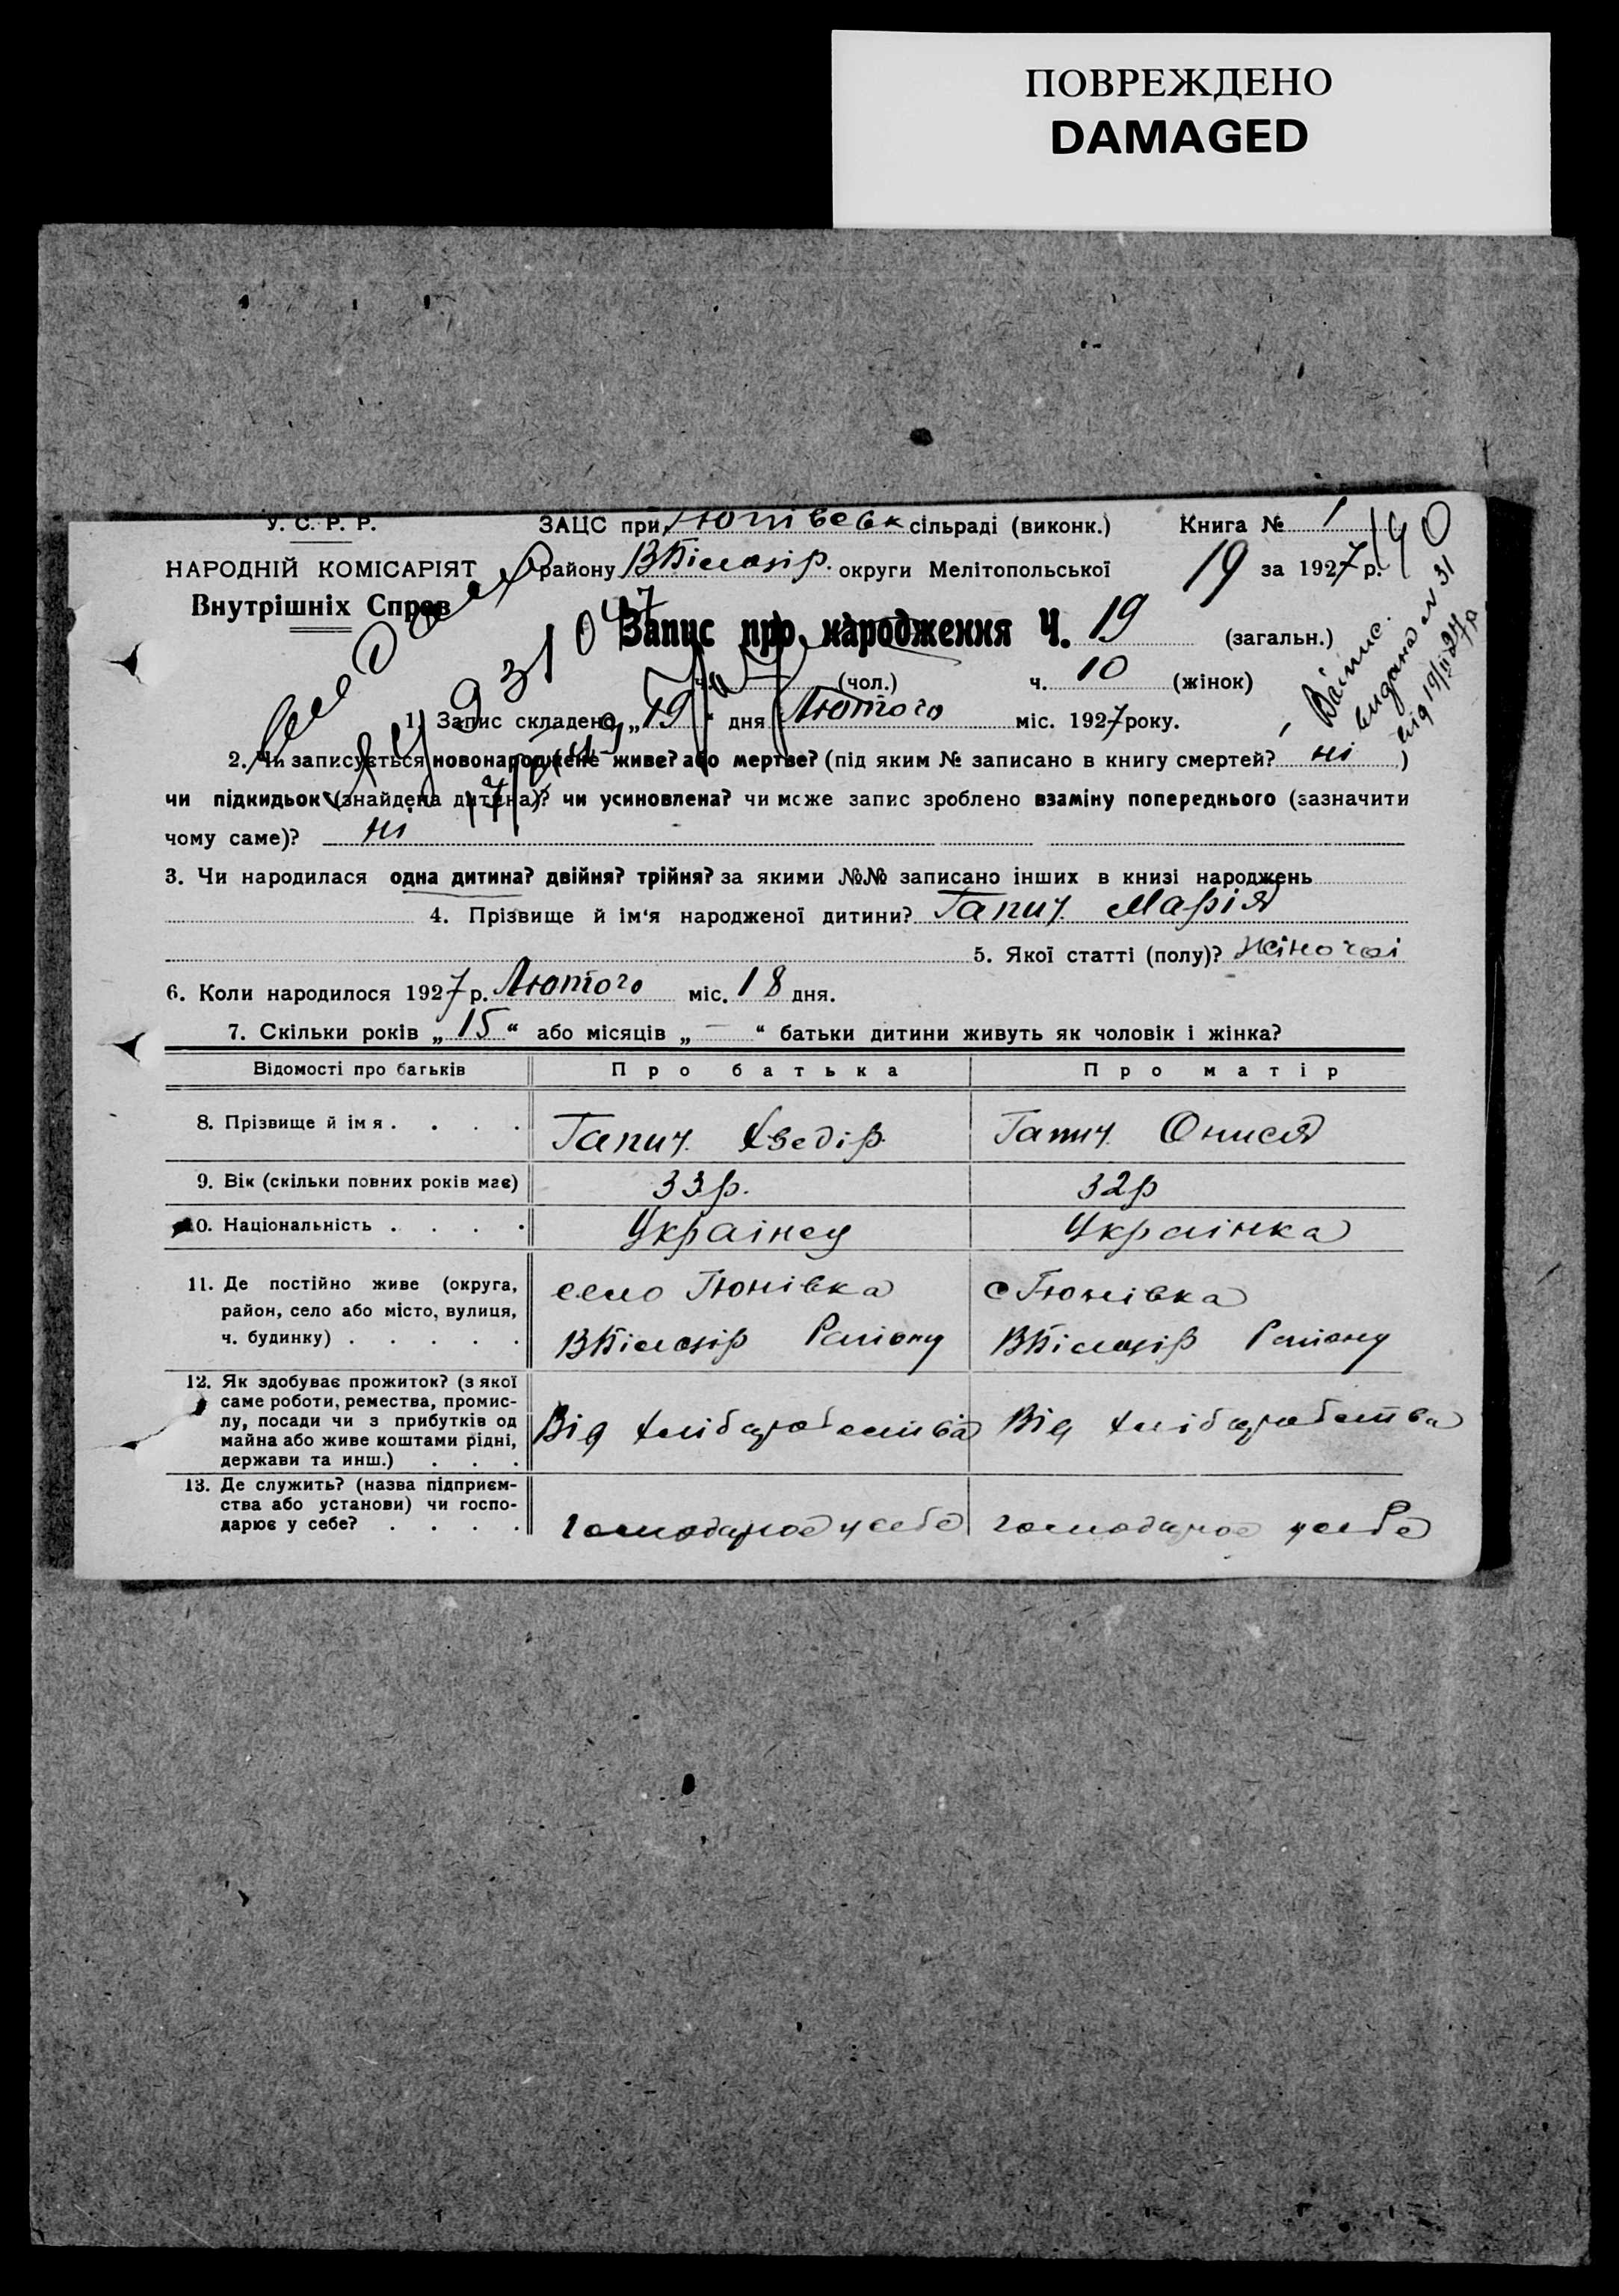 ПОВРЕЖДЕНО
DAMAGED
У. С. Р. Р. ЗАЦС при Тюпівськ сільраді (виконк.) Книга № 1
НАРОДНІЙ КОМІСАРІЯТ району ВБілозір. округи Мелітопольської 19 за 1927 р. 190
Внутрішніх Справ
Запис про народження Ч. 19 (загальн.)
ч. (чол.) ч. 10 (жінок)
Випис. видано № 31 від 19/II 27 р
1. Запис складено „19“ дня Лютого міс. 1927 року.
2. Чи записується новонароджене живе? або мертве? (під яким № записано в книгу смертей? ні )
чи підкидьок (знайдена дитина)? чи усиновлена? чи може запис зроблено взаміну попереднього (зазначити
чому саме)? ні
3. Чи народилася одна дитина? двійня? трійня? за якими №№ записано інших в книзі народжень
4. Прізвище й ім'я народженої дитини? Гапич Марія
5. Якої статті (полу)? жіночоі
6. Коли народилося 1927 р. Лютого міс. 18 дня.
7. Скільки років „15“ або місяців „—“ батьки дитини живуть як чоловік і жінка?
Відомості про батьків Про батька Про матір
8. Прізвище й ім я . . . . Гапич. Хведір. Гапич. Онися
9. Вік (скільки повних років має) 33 р. 32 р
10. Національність . . . . Українец Українка
11. Де постійно живе (округа, село Тюнівка с Тюнівка
район, село або місто, вулиця,
ч. будинку) . . . . . ВБілозір Району ВБілозір Району
12. Як здобуває прожиток? (з якої
саме роботи, ремества, промис-
лу, посади чи з прибутків од
майна або живе коштами рідні, Від хліборобства Від хліборобства
держави та инш.) . . .
13. Де служить? (назва підприєм-
ства або установи) чи госпо-
дарює у себе? . . . . господарює у себе господарює у себе